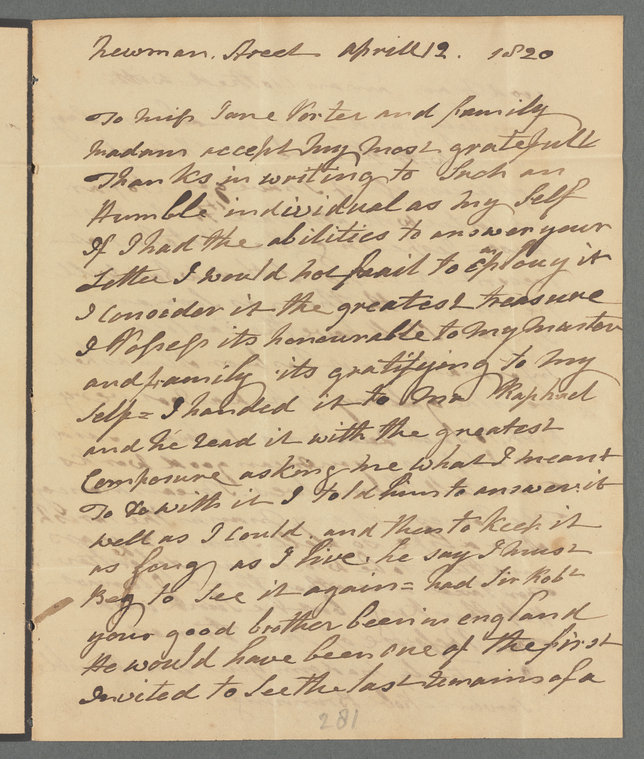 Newman. Street Aprill 12. 1820
To Miss Jane Porter and family
Madam accept My most gratefull
Thanks in writing to Such an
Humble individual as my Self
If I had the abilities to answer your
Letter I would not fail to employ it
I consider it the greatest treasure
I Possess its honourable to My Master
and family its gratifying to my
Self = I handed it to Mr Raphael
and he read it with the greatest
Composure asking me what I meant
To do with it I told him to answer it
well as I could. and then to keep it
as long as I live. he say I must
Beg to See it again = had Sir Robt
your good brother been in england
He would have been one of the first
Invited to See the last Remains of a
281